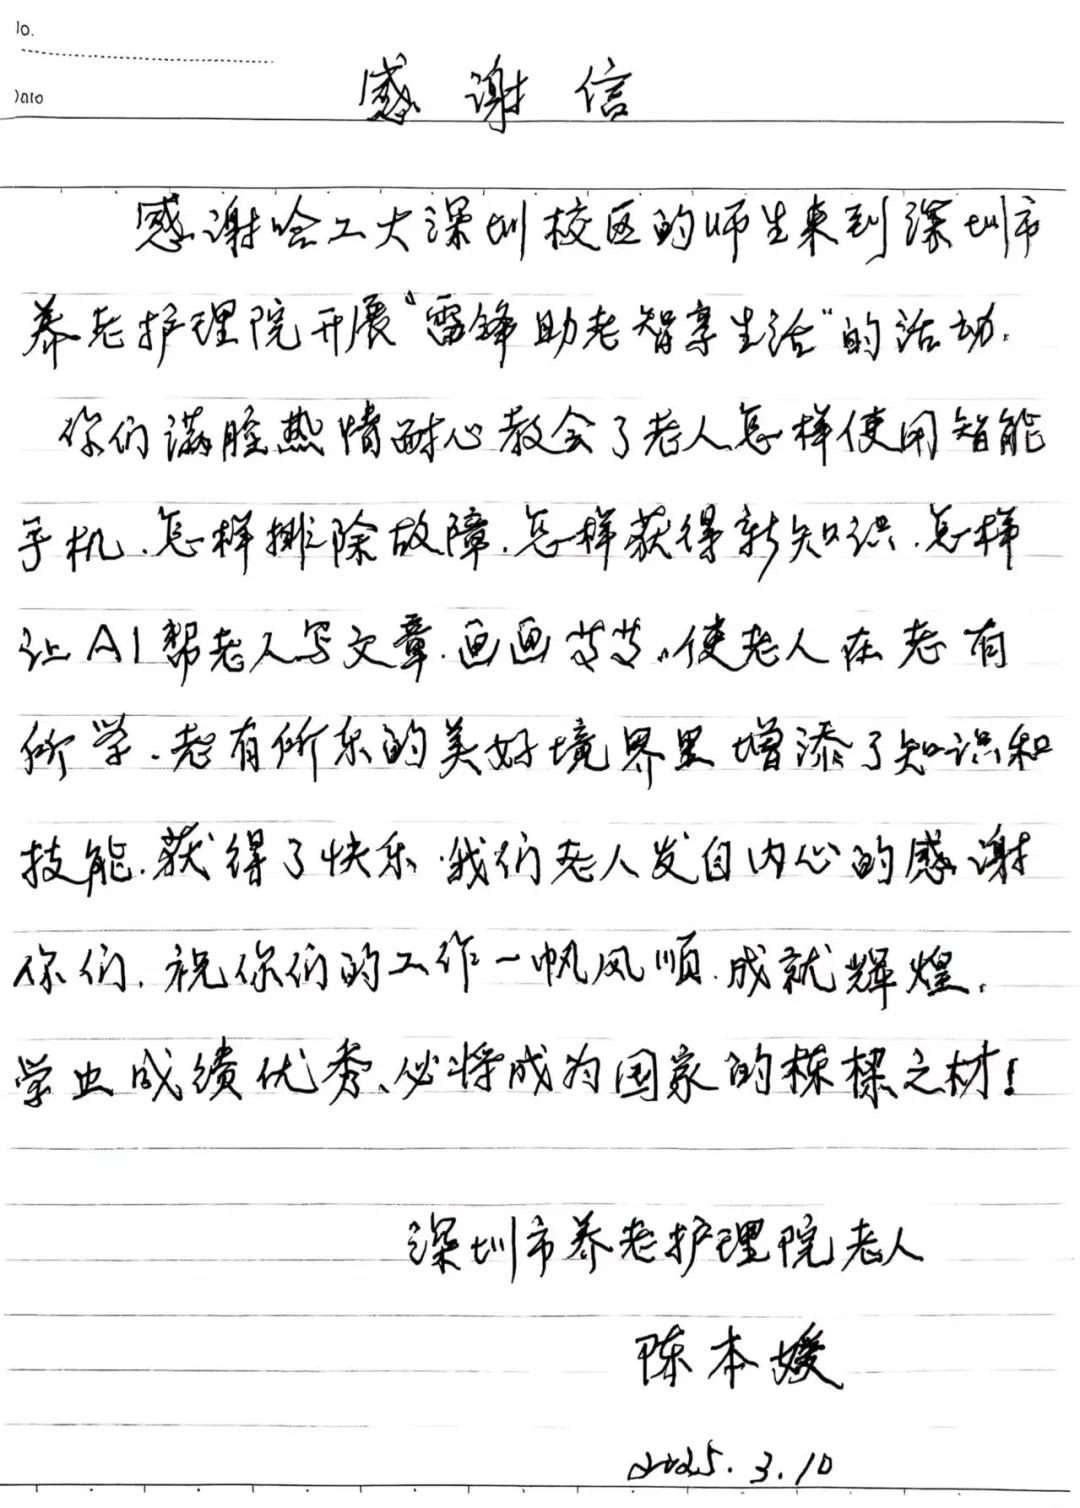 感谢信
感谢哈工大深圳校区的师生来到深圳市
养老护理院开展“雷锋助老智享生活”的活动.
你们满腔热情耐心教会了老人怎样使用智能
手机、怎样排除故障、怎样获得新知识、怎样
让AI帮老人写文章、画画等等。使老人在老有
所学、老有所乐的美好境界里增添了知识和
技能、获得了快乐.我们老人发自内心的感谢
你们.祝你们的工作一帆风顺.成就辉煌.
学业成绩优秀、必将成为国家的栋樑之材!
深圳市养老护理院老人
陈本媛
2025.3.10